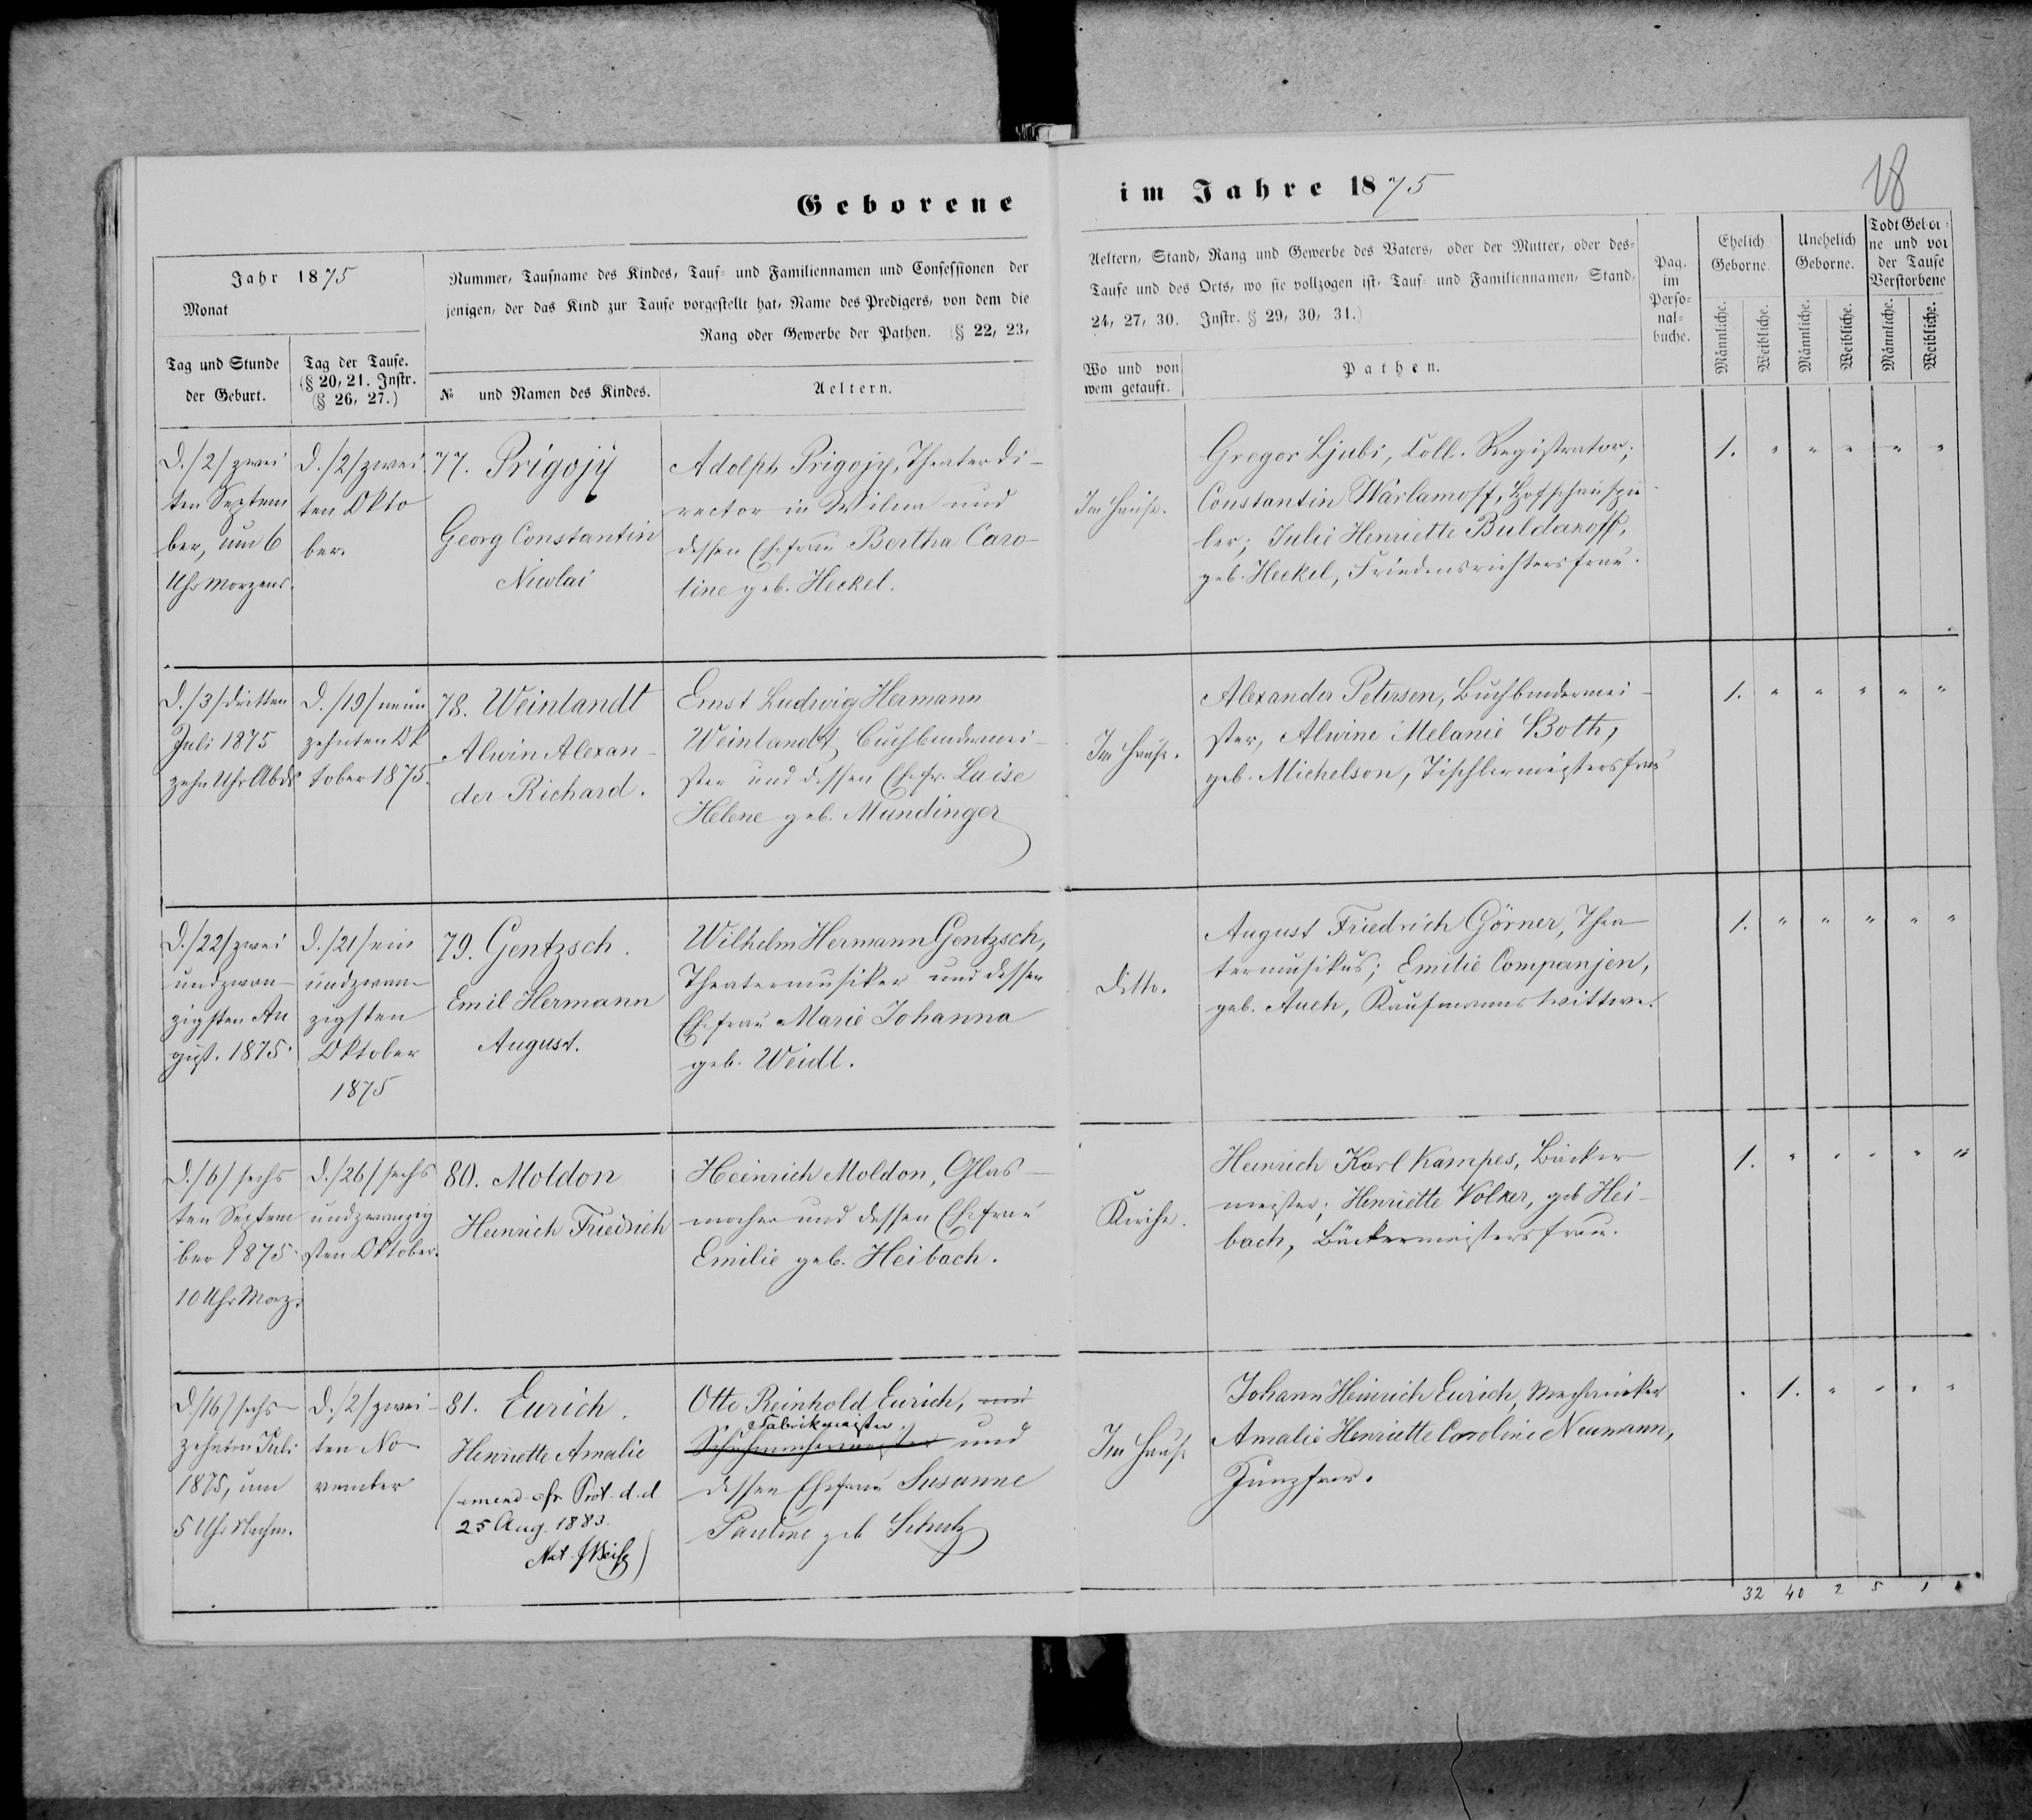 Geborene
im Jahre 1875
18
Jahr 1875
Monat
Tag und Stunde
der Geburt.
Tag der Taufe.
(§ 20, 21. Instr.
(§ 26, 27.)
Nummer, Taufname des Kindes, Tauf- und Familiennamen und Confessionen der
jenigen, der das Kind zur Taufe vorgestellt hat, Name des Predigers, von dem die
Rang oder Gewerbe der Pathen. (§ 22, 23,
№ und Namen des Kindes.
Aeltern.
Aeltern, Stand, Rang und Gewerbe des Vaters, oder der Mutter, oder des-
Taufe und des Orts, wo sie vollzogen ist, Tauf- und Familiennamen, Stand,
24, 27, 30. Instr. § 29, 30, 31.)
Wo und von
wem getauft.
Pathen.
Pag.
im
Perso-
nal-
buche.
Ehelich
Geborne.
Unehelich
Geborne.
Todt Gebor-
ne und vor
der Taufe
Verstorbene
Männliche.
Weibliche.
Männliche.
Weibliche.
Männliche.
Weibliche.
D./2/zwei
ten Septem
ber, um 6
Uhr Morgens.
D./2/zwei
ten Okto
ber.
77. Prigojy
Georg Constantin
Nicolai
Adolph Prigojy, Theaterdi-
rector in Wilna und
dessen Ehefrau Bertha Caro-
line geb. Heckel.
Im Hause.
Gregor Ljubi, Coll. Registrator;
Constantin Warlamoff, Hofschauspie-
ler; Julie Henriette Buldakoff,
geb. Heckel, Friedensrichtersfrau.
1. " " " " "
D./3/dritten
Juli 1875
zehn Uhr Abds
D./19/neun
zehnten Ok
tober 1875.
78. Weinlandt
Alwin Alexan-
der Richard.
Ernst Ludwig Hermann
Weinlandt, Buchbindermei-
ster und dessen Ehefr. Luise
Helene geb. Mundinger
Im Hause.
Alexander Petersen, Buchbindermei-
ster, Alwine Melanie Both,
geb. Michelson, Tischlermeistersfrau
1. " " " " "
D./22/zwei
undzwan-
zigsten Au
gust. 1875.
D./21/ein
undzwan-
zigsten
Oktober
1875
79. Gentzsch.
Emil Hermann
August.
Wilhelm Hermann Gentzsch,
Theatermusiker und dessen
Ehefrau Marie Johanna
geb. Weidl.
ditto.
August Friedrich Görner, Thea-
termusikus; Emilie Companjen,
geb. Auch, Kaufmanns Wittwe.
1. " " " " "
D./6/sechs
ten Septem
ber 1875.
10 Uhr Morg.
D./26/sechs
undzwanzig
sten Oktober.
80. Moldon
Heinrich Friedrich
Heinrich Moldon, Glas-
macher und dessen Ehefrau
Emilie geb. Heibach.
Kirche.
Heinrich Karl Kampes, Bäcker-
meister; Henriette Volker, geb Hei-
bach, Bäckermeistersfrau.
1. " " " " "
D./16/sechs-
zehnten Juli
1875, um
5 Uhr Nachm.
D./2/zwei-
ten No-
vember
81. Eurich.
Henriette Amalie
(emend. cfr Prot. d.d
25 Aug. 1883.
Otto Reinhold Eurich,
Fabrikmeister
Schuhmachermeister und
dessen Ehefrau Susanne
Pauline geb Schulz
Im Hause
Johann Heinrich Eurich, Mechaniker
Amalie Henriette Caroline Neumann,
Jungfrau.
. 1. " " " "
32 40 2 5 1 1